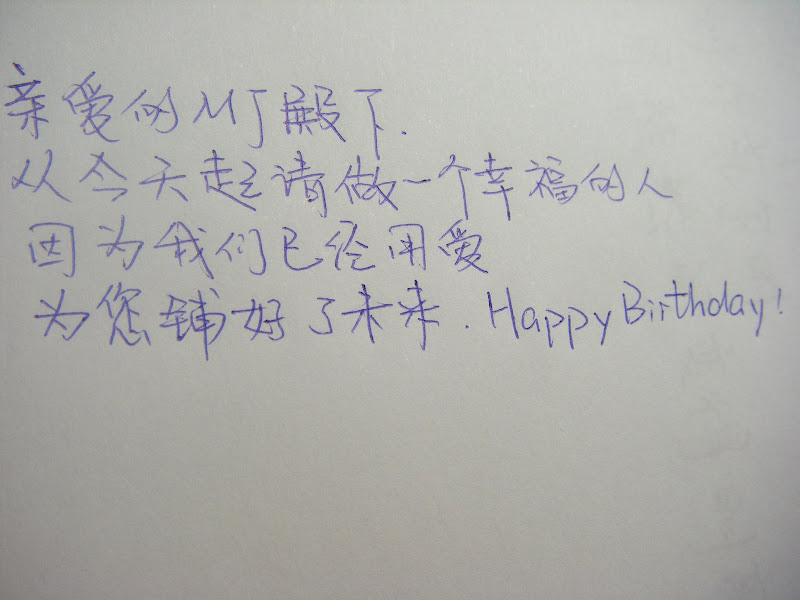 亲爱的MJ殿下.
从今天起请做一个幸福的人
因为我们已经用爱
为您铺好了未来.Happy Birthday!